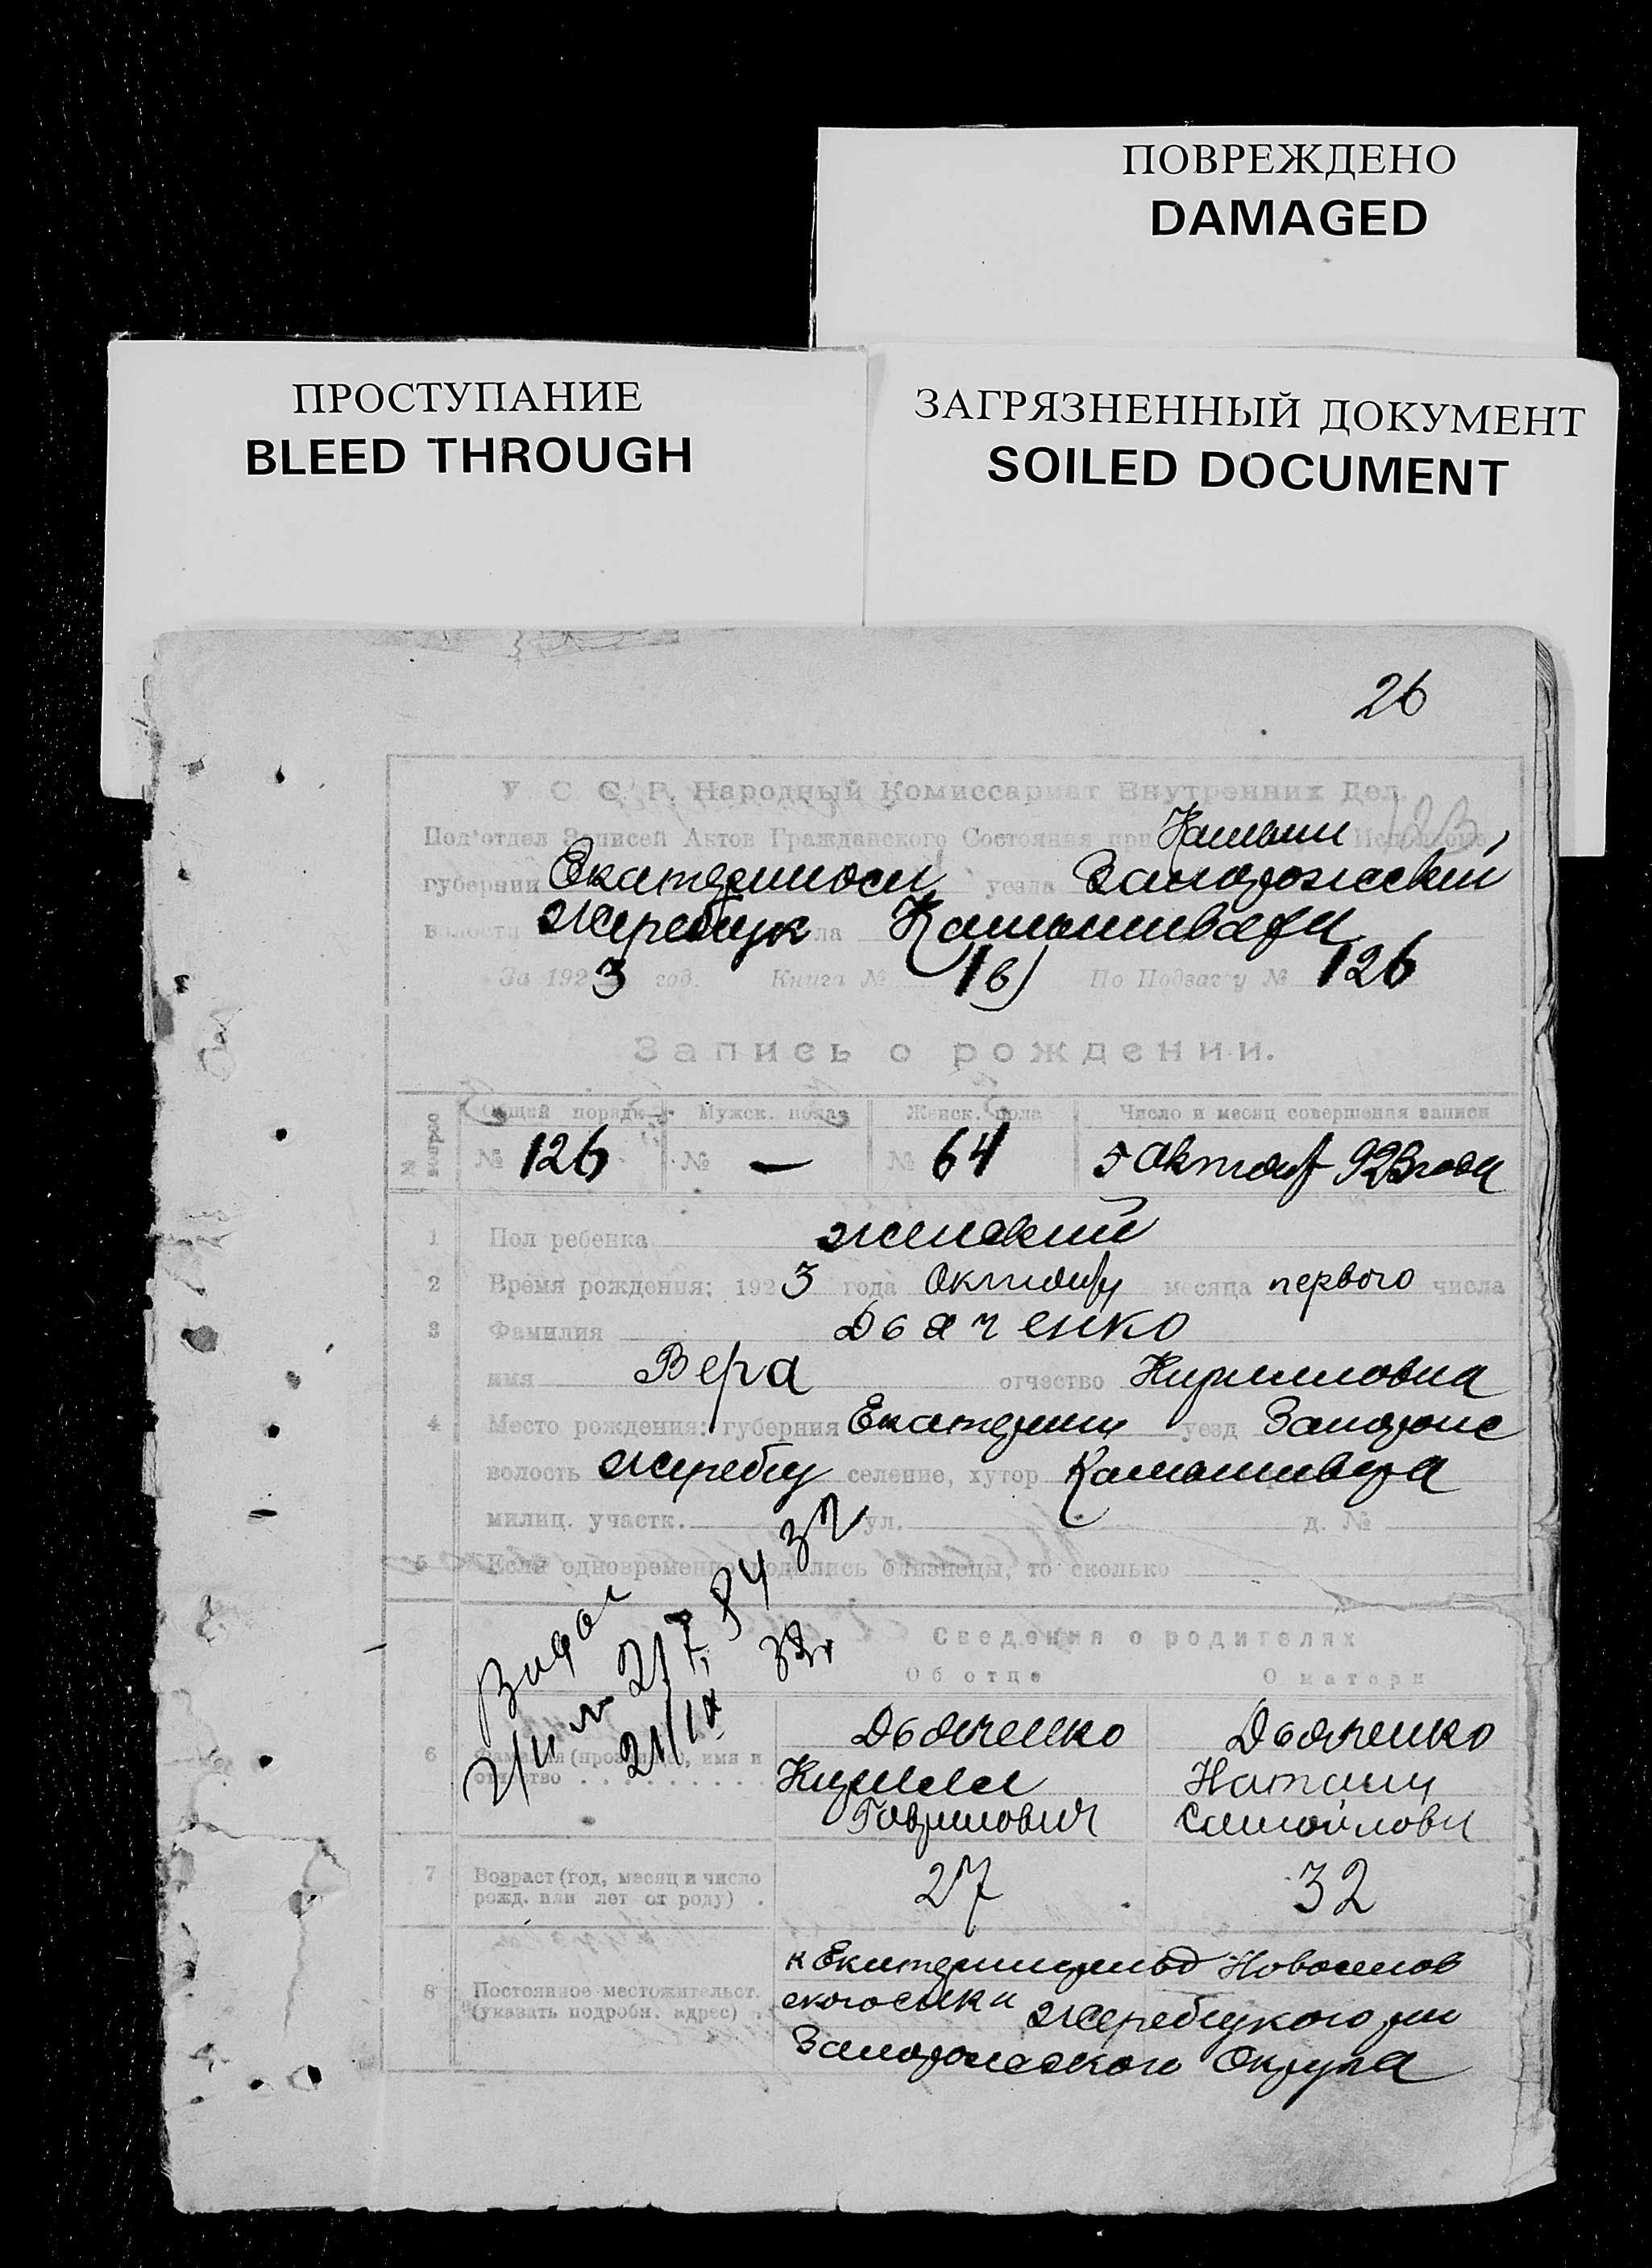 ПОВРЕЖДЕНО
DAMAGED
ПРОСТУПАНИЕ
BLEED THROUGH
ЗАГРЯЗНЕННЫЙ ДОКУМЕНТ
SOILED DOCUMENT
26
У. С. С. Р. Народный Комиссариат Внутренних Дел.
Под'отдел Записей Актов Гражданского Состояния при
губернии Екатериносл уезда Запорожский
волости Жеребцк ла
За 1923 год. Книга № 1 в) По Подзагсу № 126
Запись о рождении.
№ вопро Общий порядк. Мужск. пола Женск. пола Число и месяц совершения записи
№ 126 № — № 64 5 Октяб 923 года
1 Пол ребенка женский
2 Время рождения: 1923 года Октября месяца первого числа
3 Фамилия Дьяченко
имя Вера отчество Кирилловна
4 Место рождения: губерния Екатерин уезд Запорож
волость Жеребц селение, хутор
милиц. участк. ул. д. №
5 Если одновременно родились близнецы, то сколько
Сведения о родителях
Об отце О матери
21/IX 32
6 Фамилия (прозвище), имя и отчество Дьяченко Дьяченко
Кирилл Наталия
Гаврилович Самойловн
7 Возраст (год, месяц и число
рожд. или лет от роду) 27 32
8 Постоянное местожительст.
(указать подробн. адрес)
Жеребцкого
Запорожского Округа